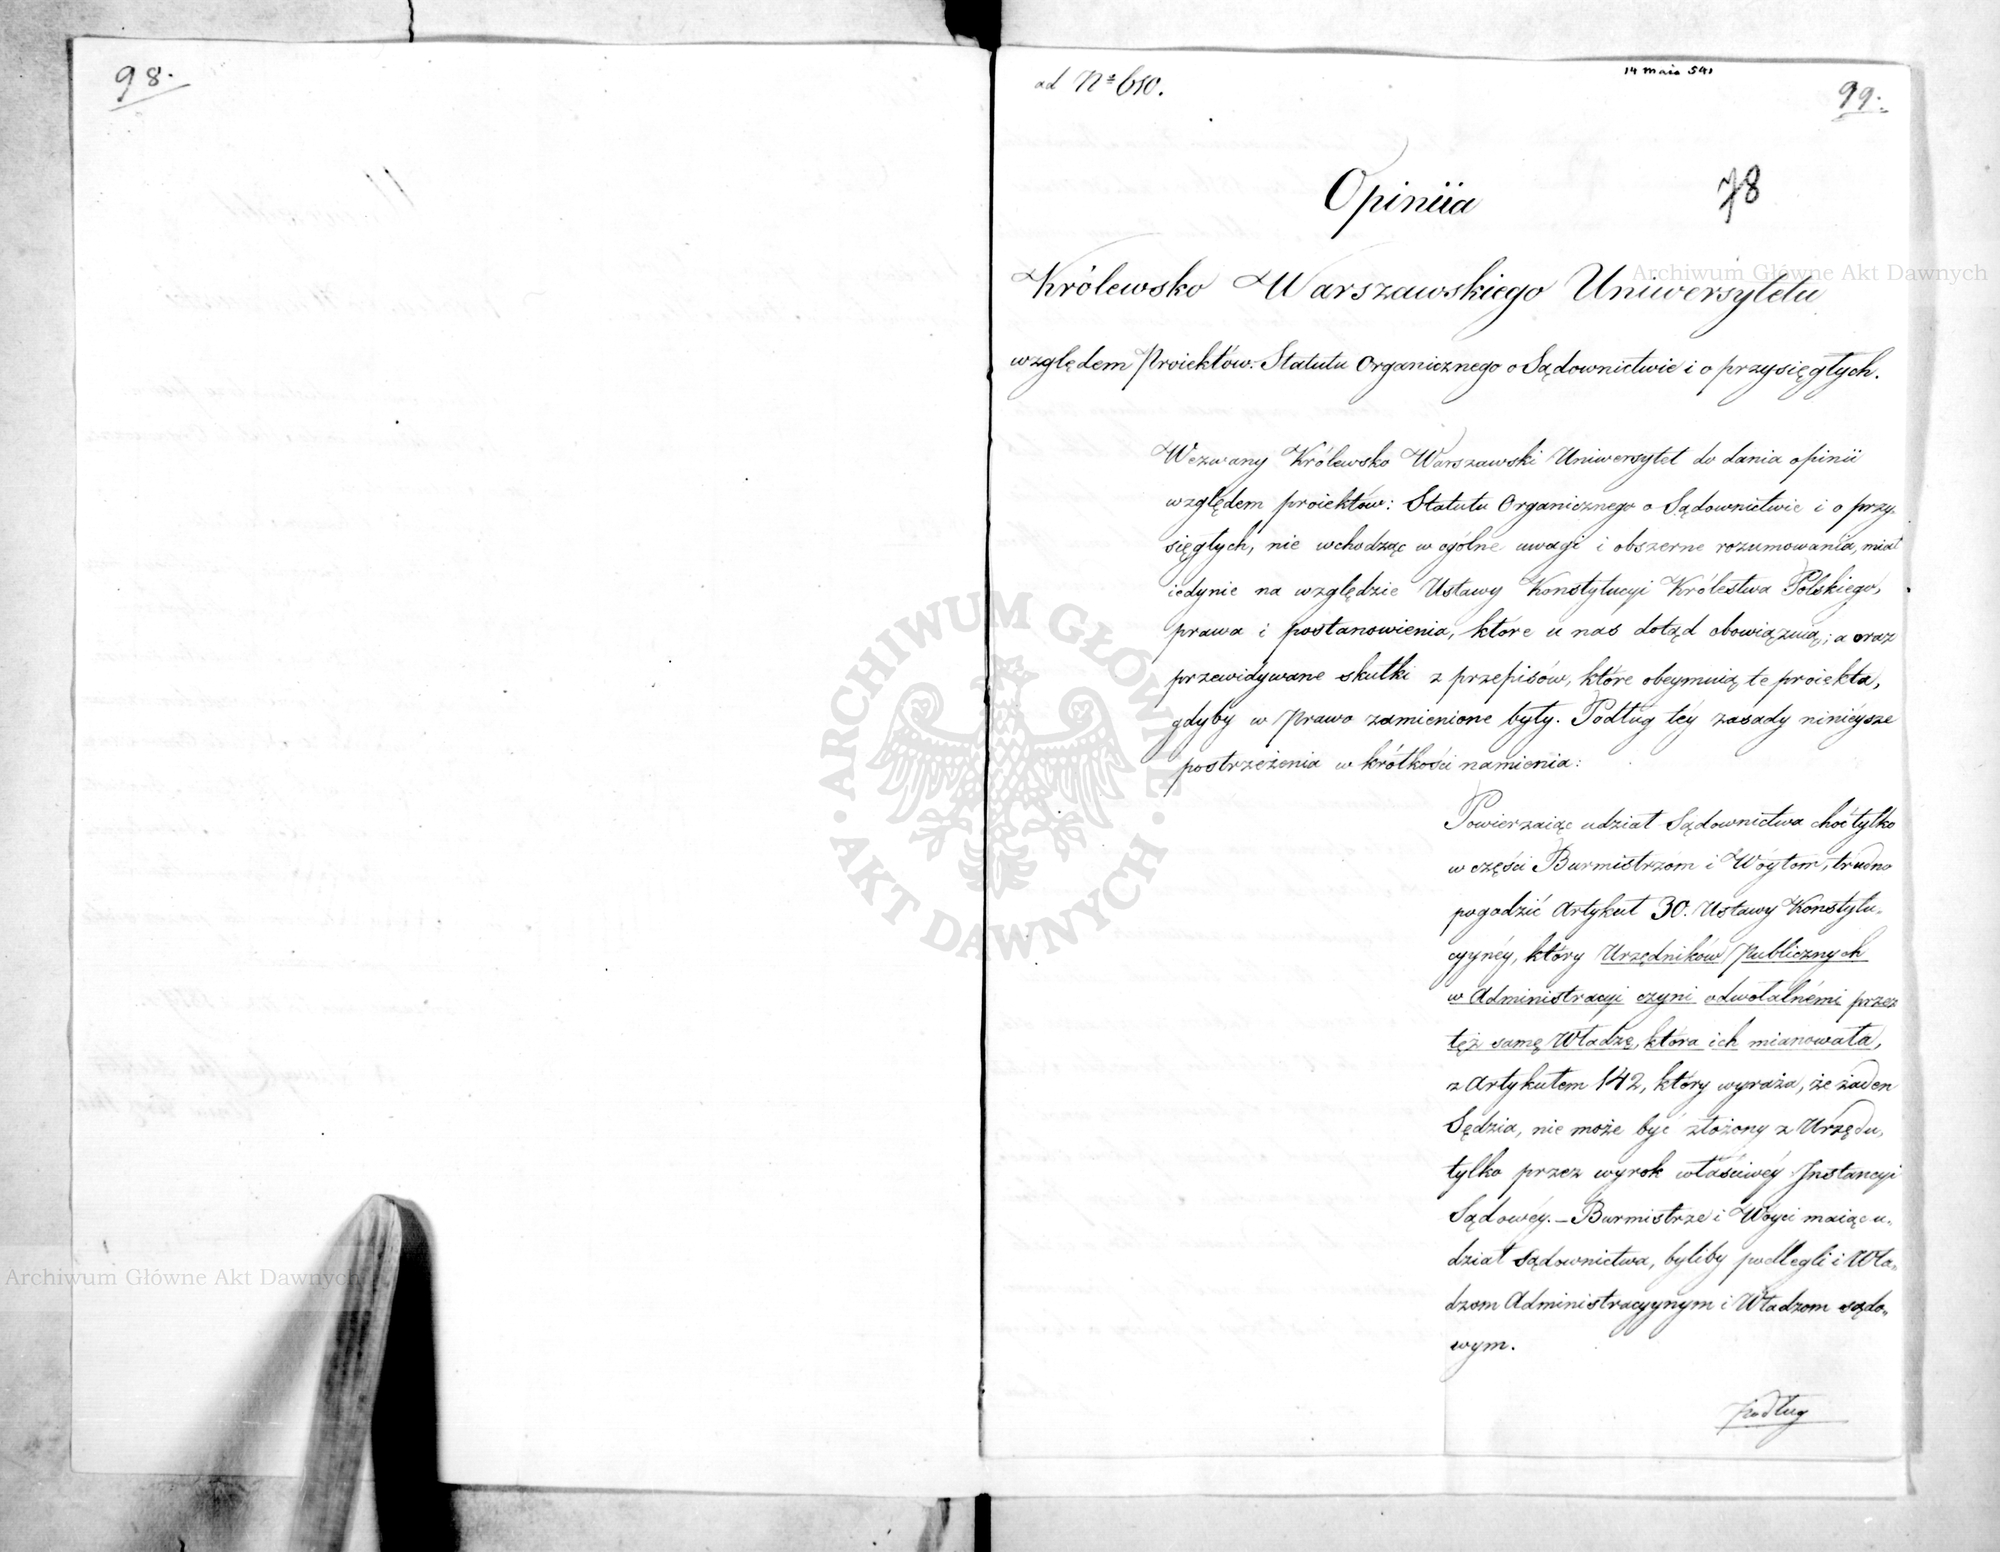 98.
ad No 610.
14 maia 541
99.
78
Opiniia
Królewsko Warszawskiego Uniwersytetu
względem Proiektów: Statutu Organicznego o Sądownictwie i o przysięgłych.
Wezwany Królewsko Warszawski Uniwersytet do dania opinii
względem proiektów: Statutu Organicznego o Sądownictwie i o przy-
sięgłych, nie wchodząc w ogólne uwagi i obszerne rozumowania, miał
iedynie na względzie Ustawy Konstytucyi Królestwa Polskiego,
prawa i postanowienia, które u nas dotąd obowiązuią; a oraz
przewidywane skutki z przepisów, które obeymuią te proiekta,
gdyby w Prawo zamienione były. Podług téy zasady ninieysze
postrzeżenia w krótkości namienia:
Powierzaiąc udział Sądownictwa choć tylko
w części Burmistrzom i Wóytom, trudno
pogodzić Artykuł 30. Ustawy Konstytu-
cyynéy, który Urzędników Publicznych
w Administracyi czyni odwołalnémi przez
tęż samę Władzę, która ich mianowała,
z Artykułem 142, który wyraża, że żaden
Sędzia, nie może być złożony z Urzędu,
tylko przez wyrok właściwéy Instancyi
Sądowéy. – Burmistrze i Wóyci maiąc u-
dział sądownictwa, byliby podlegli i Wła-
dzom Administracyynym i Władzom sądo-
wym.
Podług
Archiwum Główne Akt Dawnych
ARCHIWUM GŁÓWNE
AKT DAWNYCH
Archiwum Główne Akt Dawnych